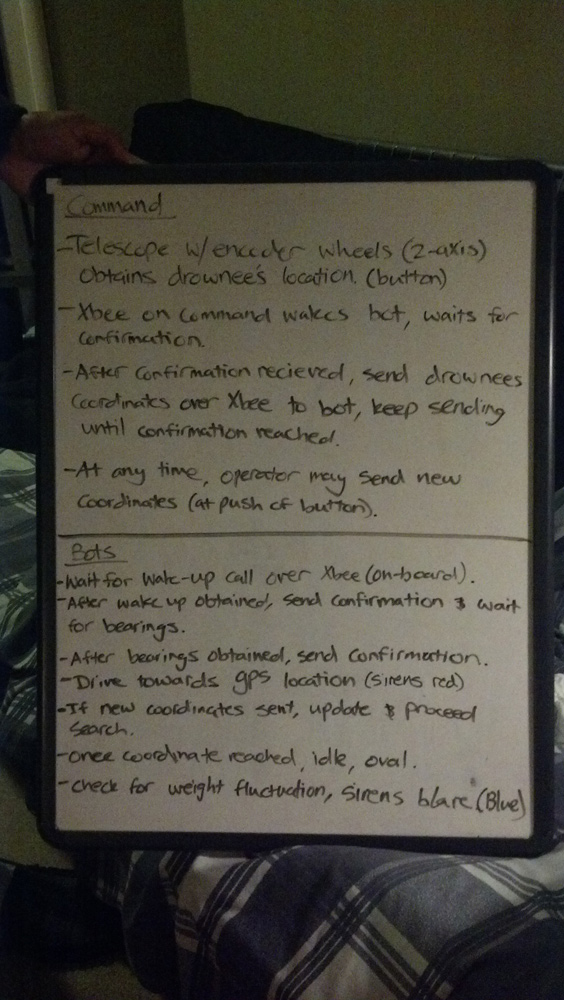 Command
-Telescope w/encoder wheels (2-axis)
Obtains drownee's location. (button)
-Xbee on command wakes bot, waits for
confirmation.
-After confirmation recieved, send drownees
Coordinates over Xbee to bot, keep sending
until confirmation reached.
-At any time, operator may send new
Coordinates (at push of button).
Bots
-Wait for wake-up call over Xbee (on-board).
-After wake up obtained, send confirmation & wait
for bearings.
-After bearings obtained, send confirmation.
-Drive towards gps location (sirens red)
-If new coordinates sent, update & proceed
search.
-Once coordinate reached, idle, oval.
-Check for weight fluctuation, sirens blare (Blue)